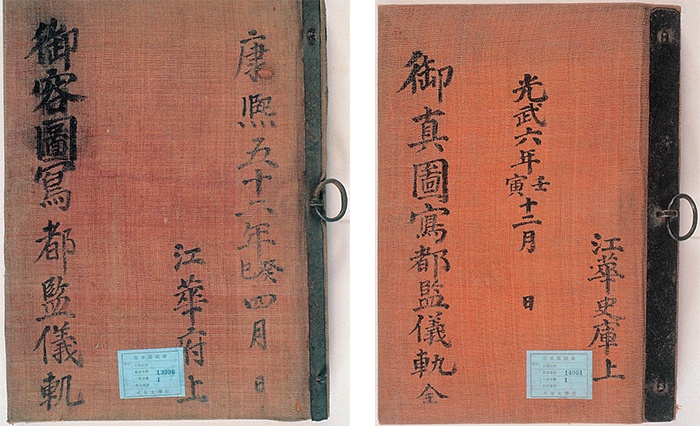 康熙五十二年癸巳四月 日
江華府上
御容圖寫都監儀軌
1
江華史庫上
光武六年壬寅十二月 日
御真圖寫都監儀軌 全
1